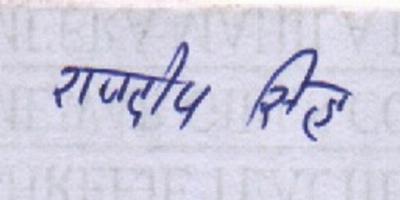 राजदीप सिंह